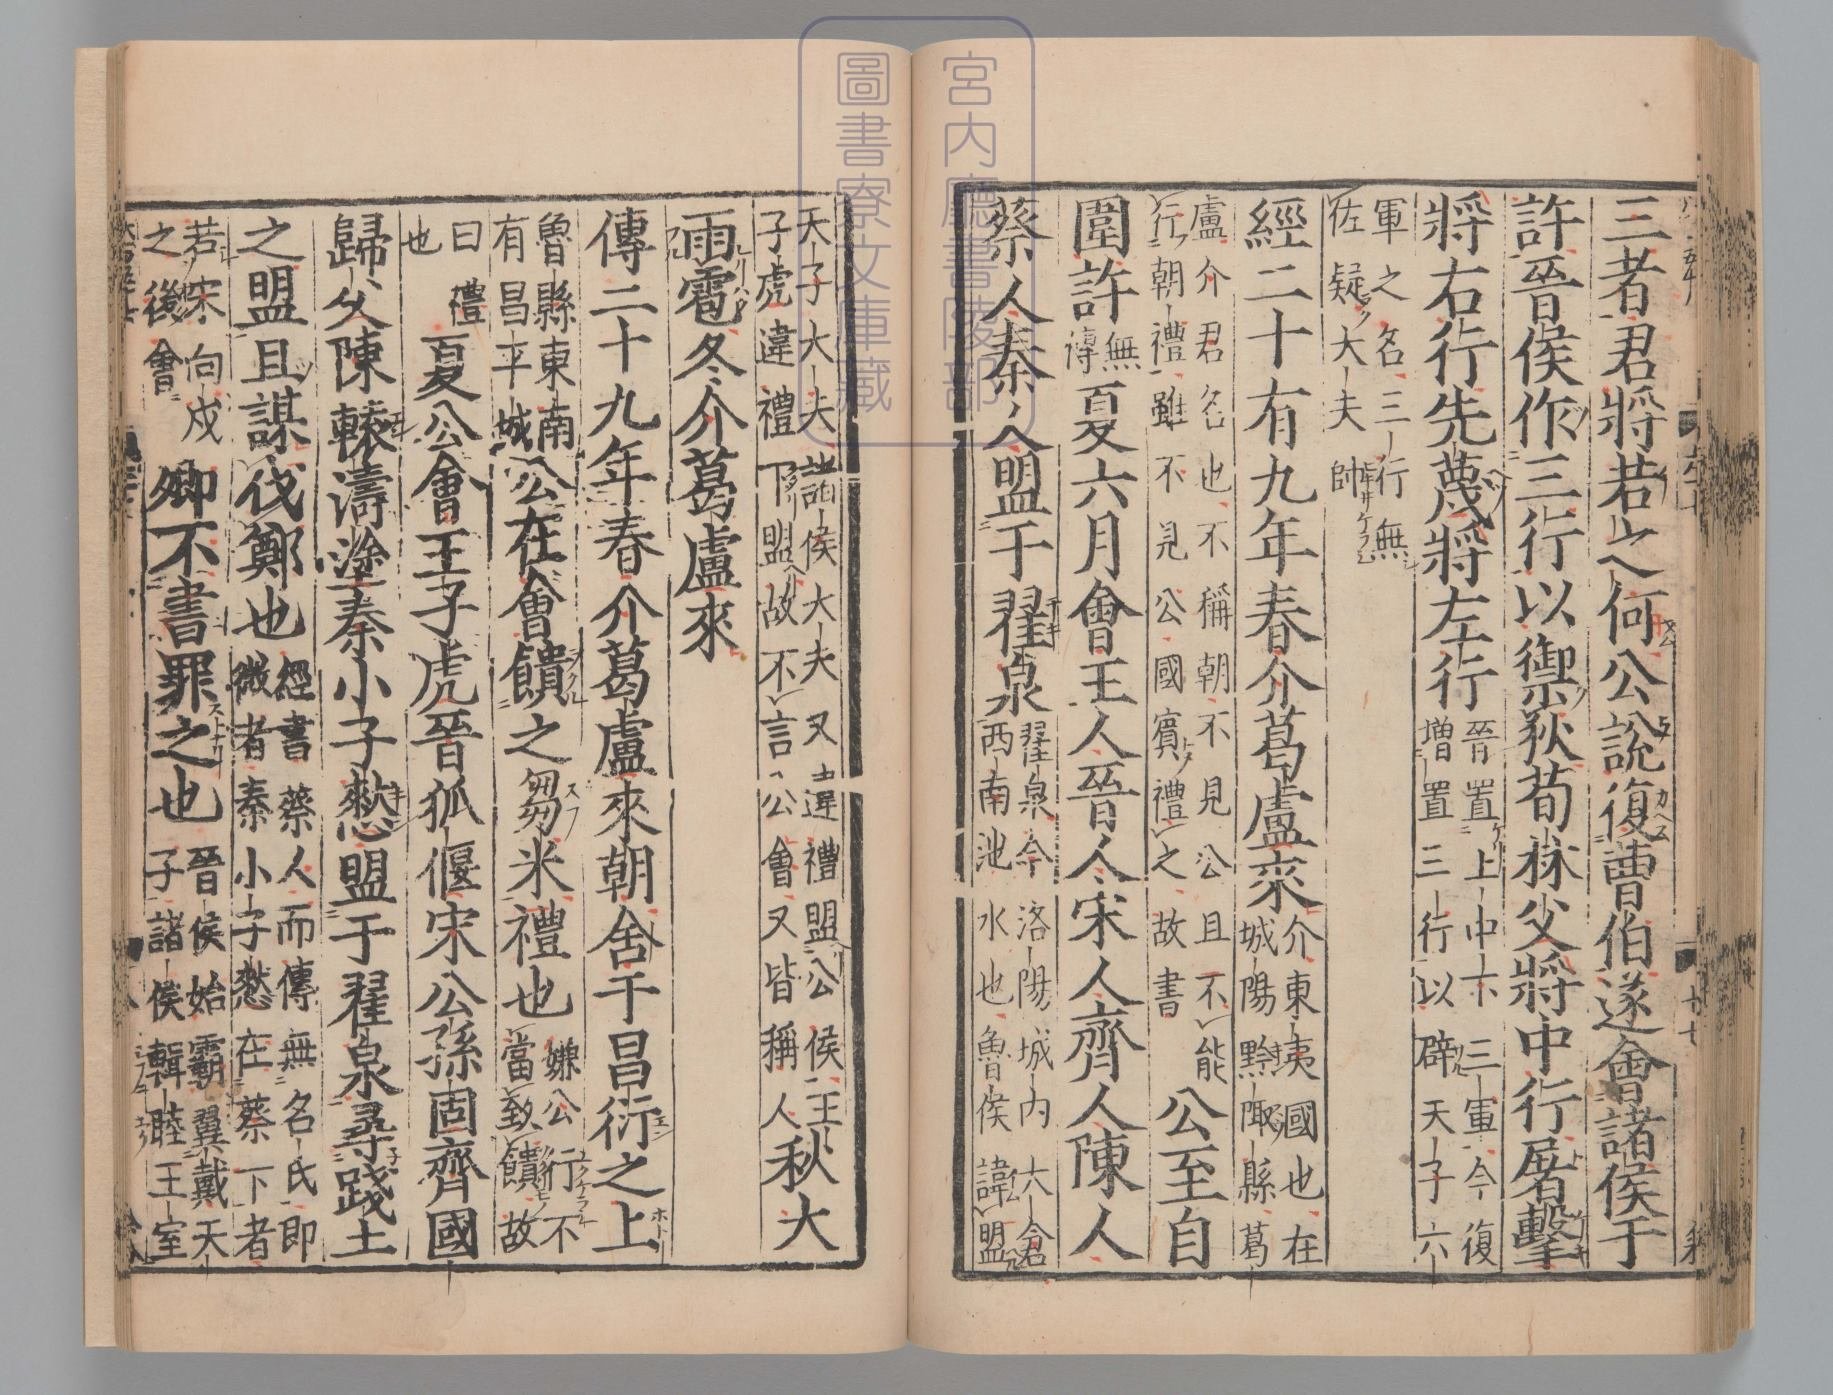 三者君將若之何公說復曹伯遂會諸侯于
許晉侯作三行以禦狄荀林父將中行屠擊
將右行先蔑將左行
晉置上中下三軍今復
增置三行以辟天子六
軍之名三行無
佐疑大夫帥
經二十有九年春介葛盧來
介東夷國也在
城陽黔陬縣葛
盧介君名也不稱朝不見公且不能
行朝禮雖不見公國賓禮之故書
公至自
圍許
無
傳
夏六月會王人晉人宋人齊人陳人
蔡人秦人盟于翟泉
翟泉今洛陽城內大倉
西南池水也魯侯諱盟
天子大夫諸侯大夫又違禮盟公侯王
子虎違禮下盟故不言公會又皆稱人
秋大
雨雹冬介葛盧來
傳二十九年春介葛盧來朝舍于昌衍之上
魯縣東南
有昌平城
公在會饋之芻米禮也
嫌公行不
當致饋故
曰禮
也
夏公會王子虎晉狐偃宋公孫固齊國
歸父陳轅濤塗秦小子憖盟于翟泉尋踐土
之盟且謀伐鄭也
經書蔡人而傳無名氏即
微者秦小子憖在蔡下者
若宋向戌
之後會
卿不書罪之也
晉侯始霸翼戴天
子諸侯輯睦王室
宮內廳書陵部
圖書寮文庫藏